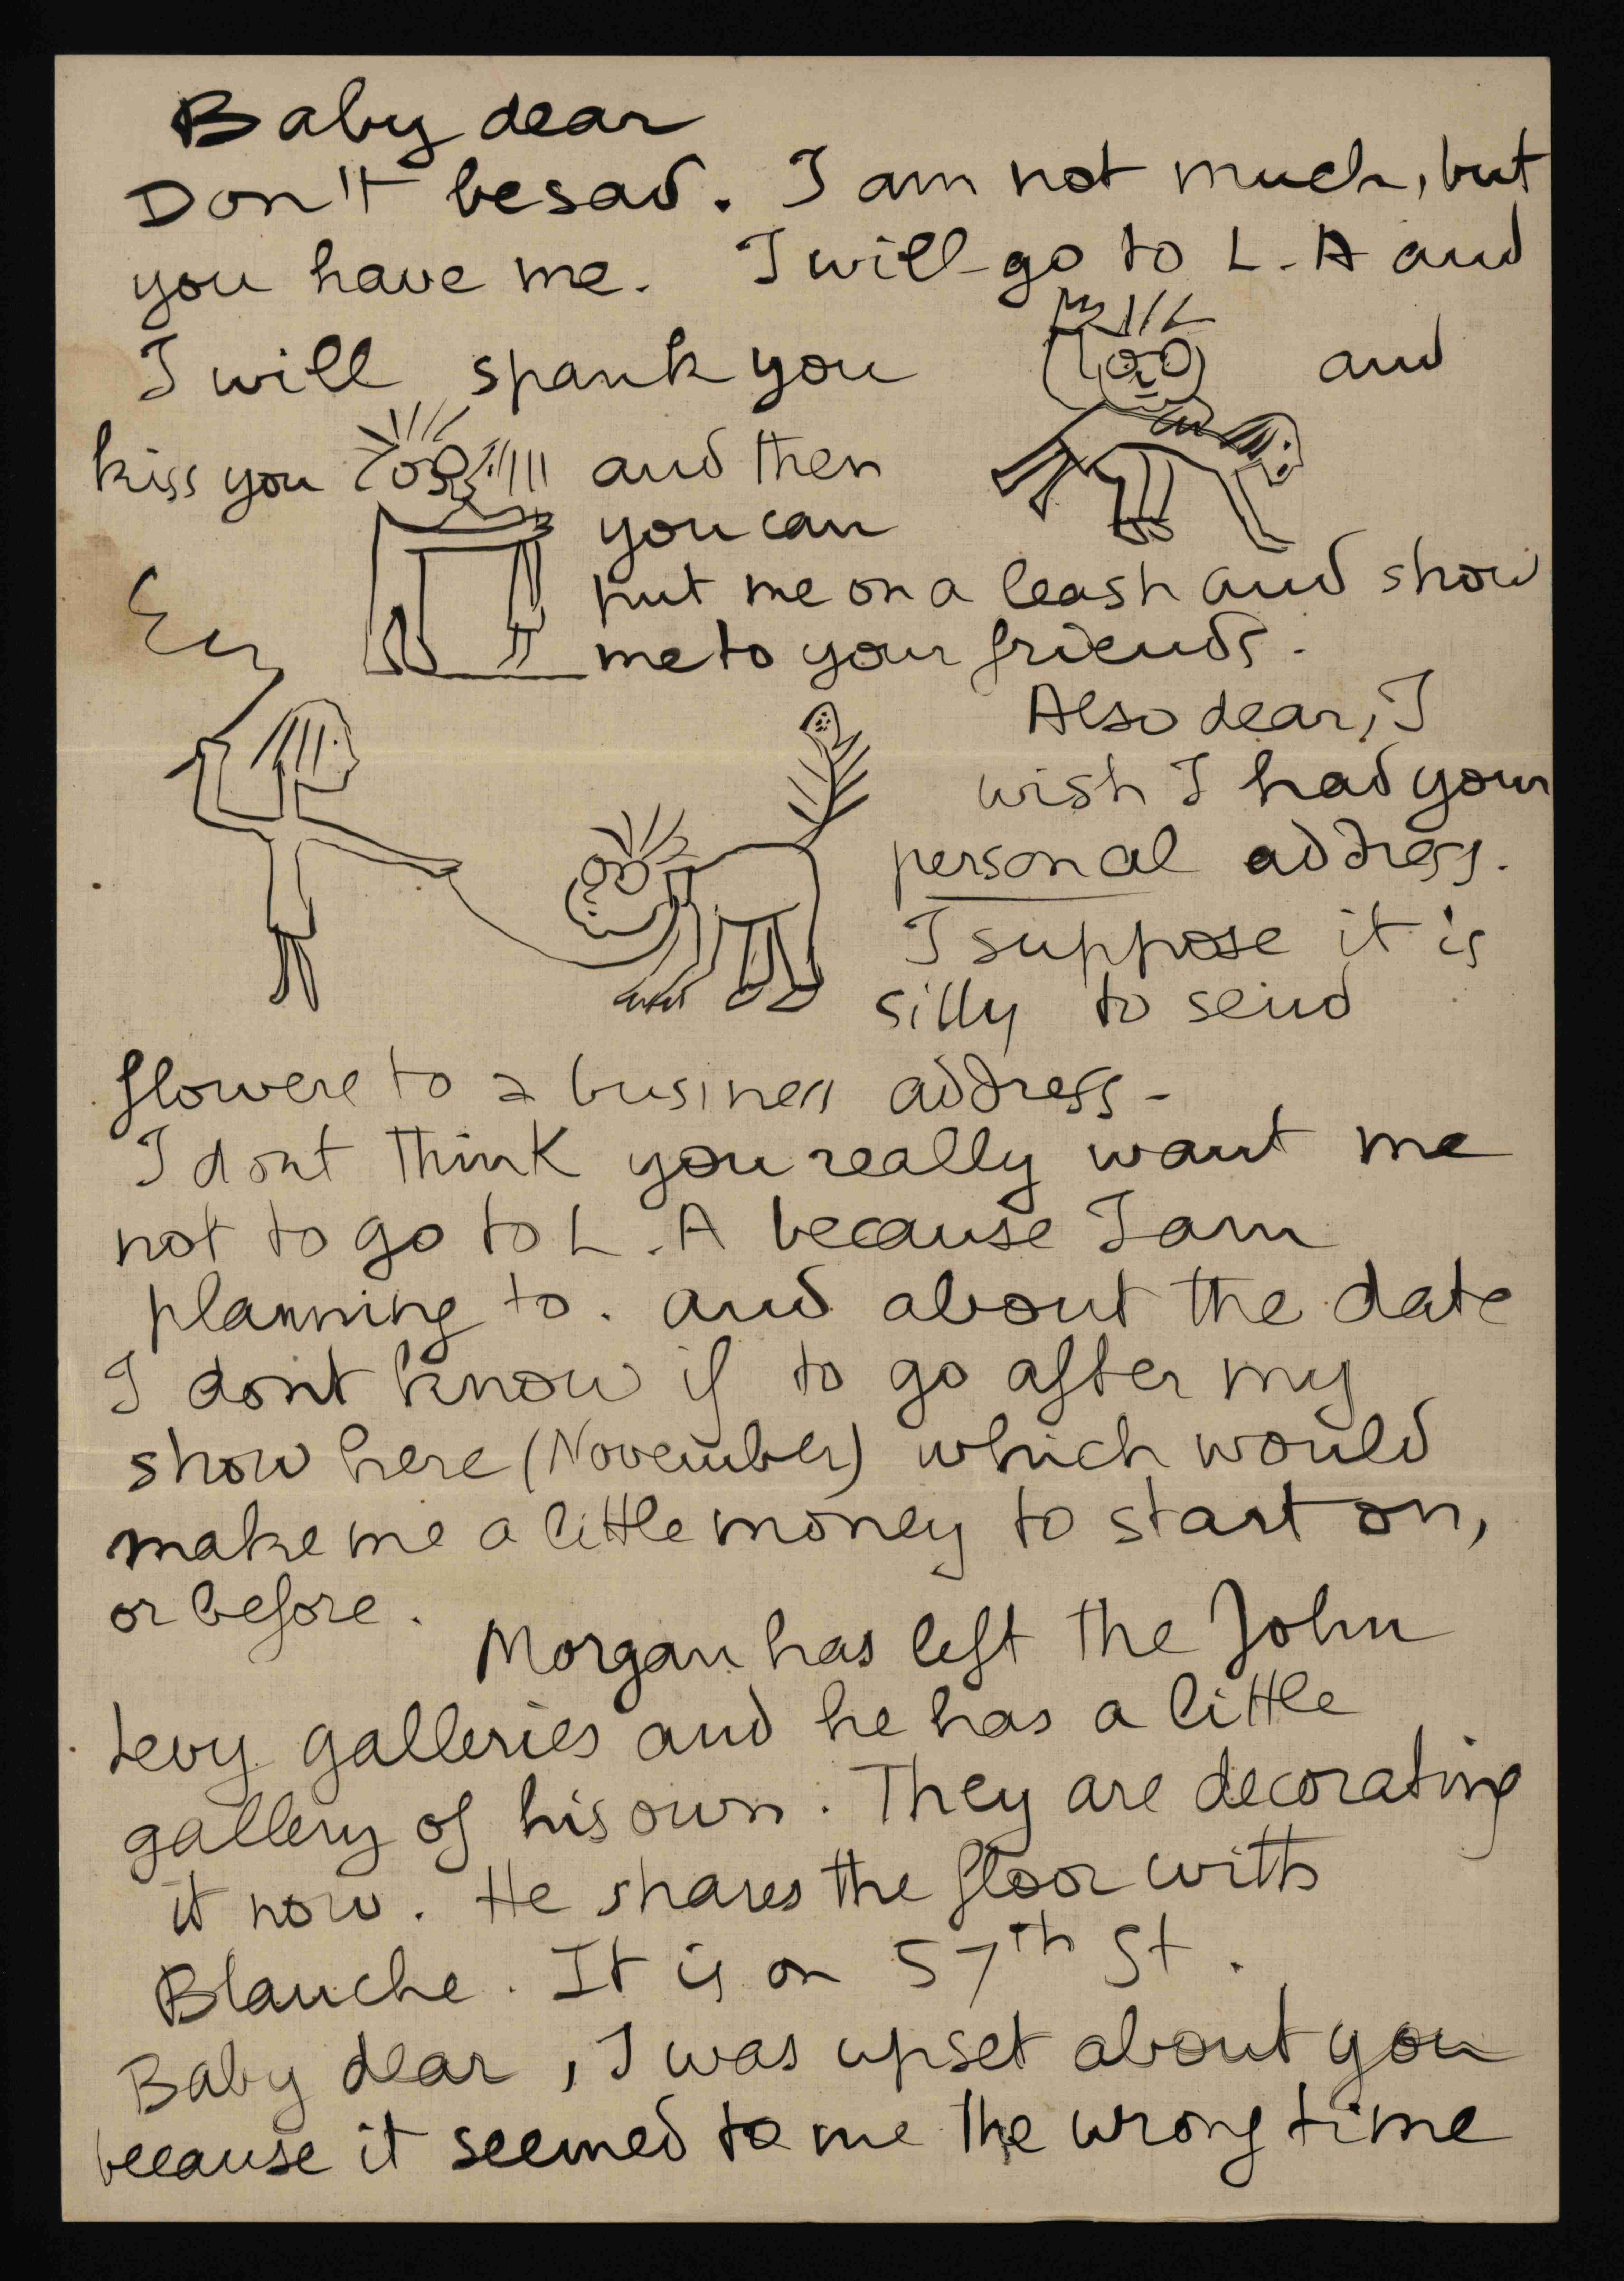 Baby dear
Don't be sad. I am not much, but
you have me. I will go to L.A and
I will spank you and
kiss you and then
you can
put me on a leash and show
me to your friends.
Also dear, I
wish I had your
personal address.
I suppose it is
silly to send
flowers to a business address -
I dont think you really want me
not to go to L.A because I am
planning to. and about the date
I dont know if to go after my
show here (November) which would
make me a little money to start on,
or before.
Morgan has left the John
Levy galleries and he has a little
gallery of his own. They are decorating
it now. He shares the floor with
Blanche. It is on 57th St.
Baby dear, I was upset about you
because it seemed to me the wrong time